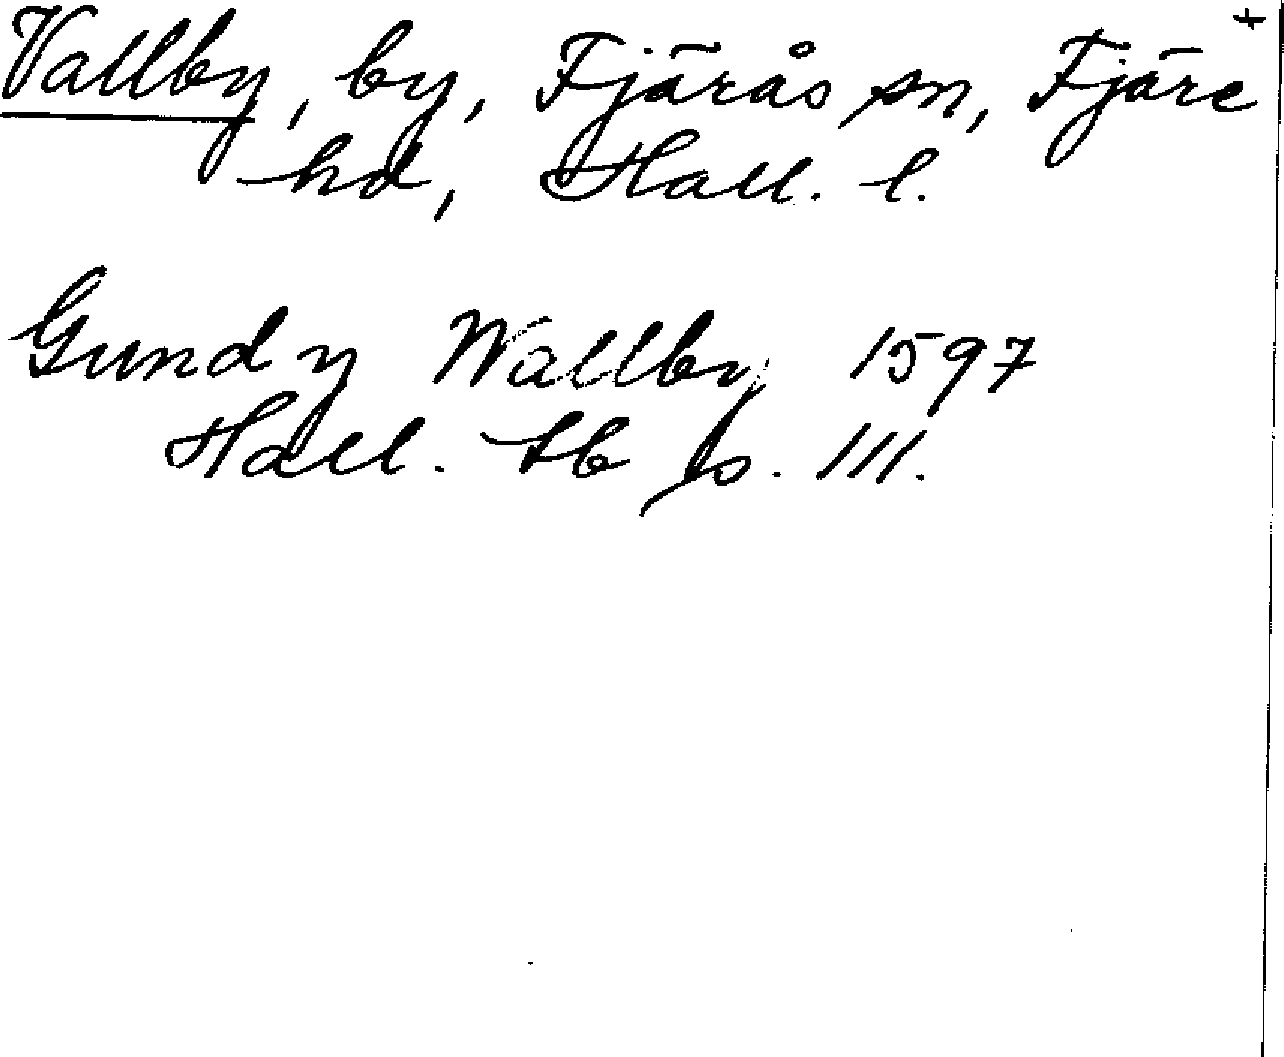 Vallby, by, Fjärås sn, Fjäre +
hd, Hall. l.
Gundy Wallby 1597
Hall. tb s. 111.